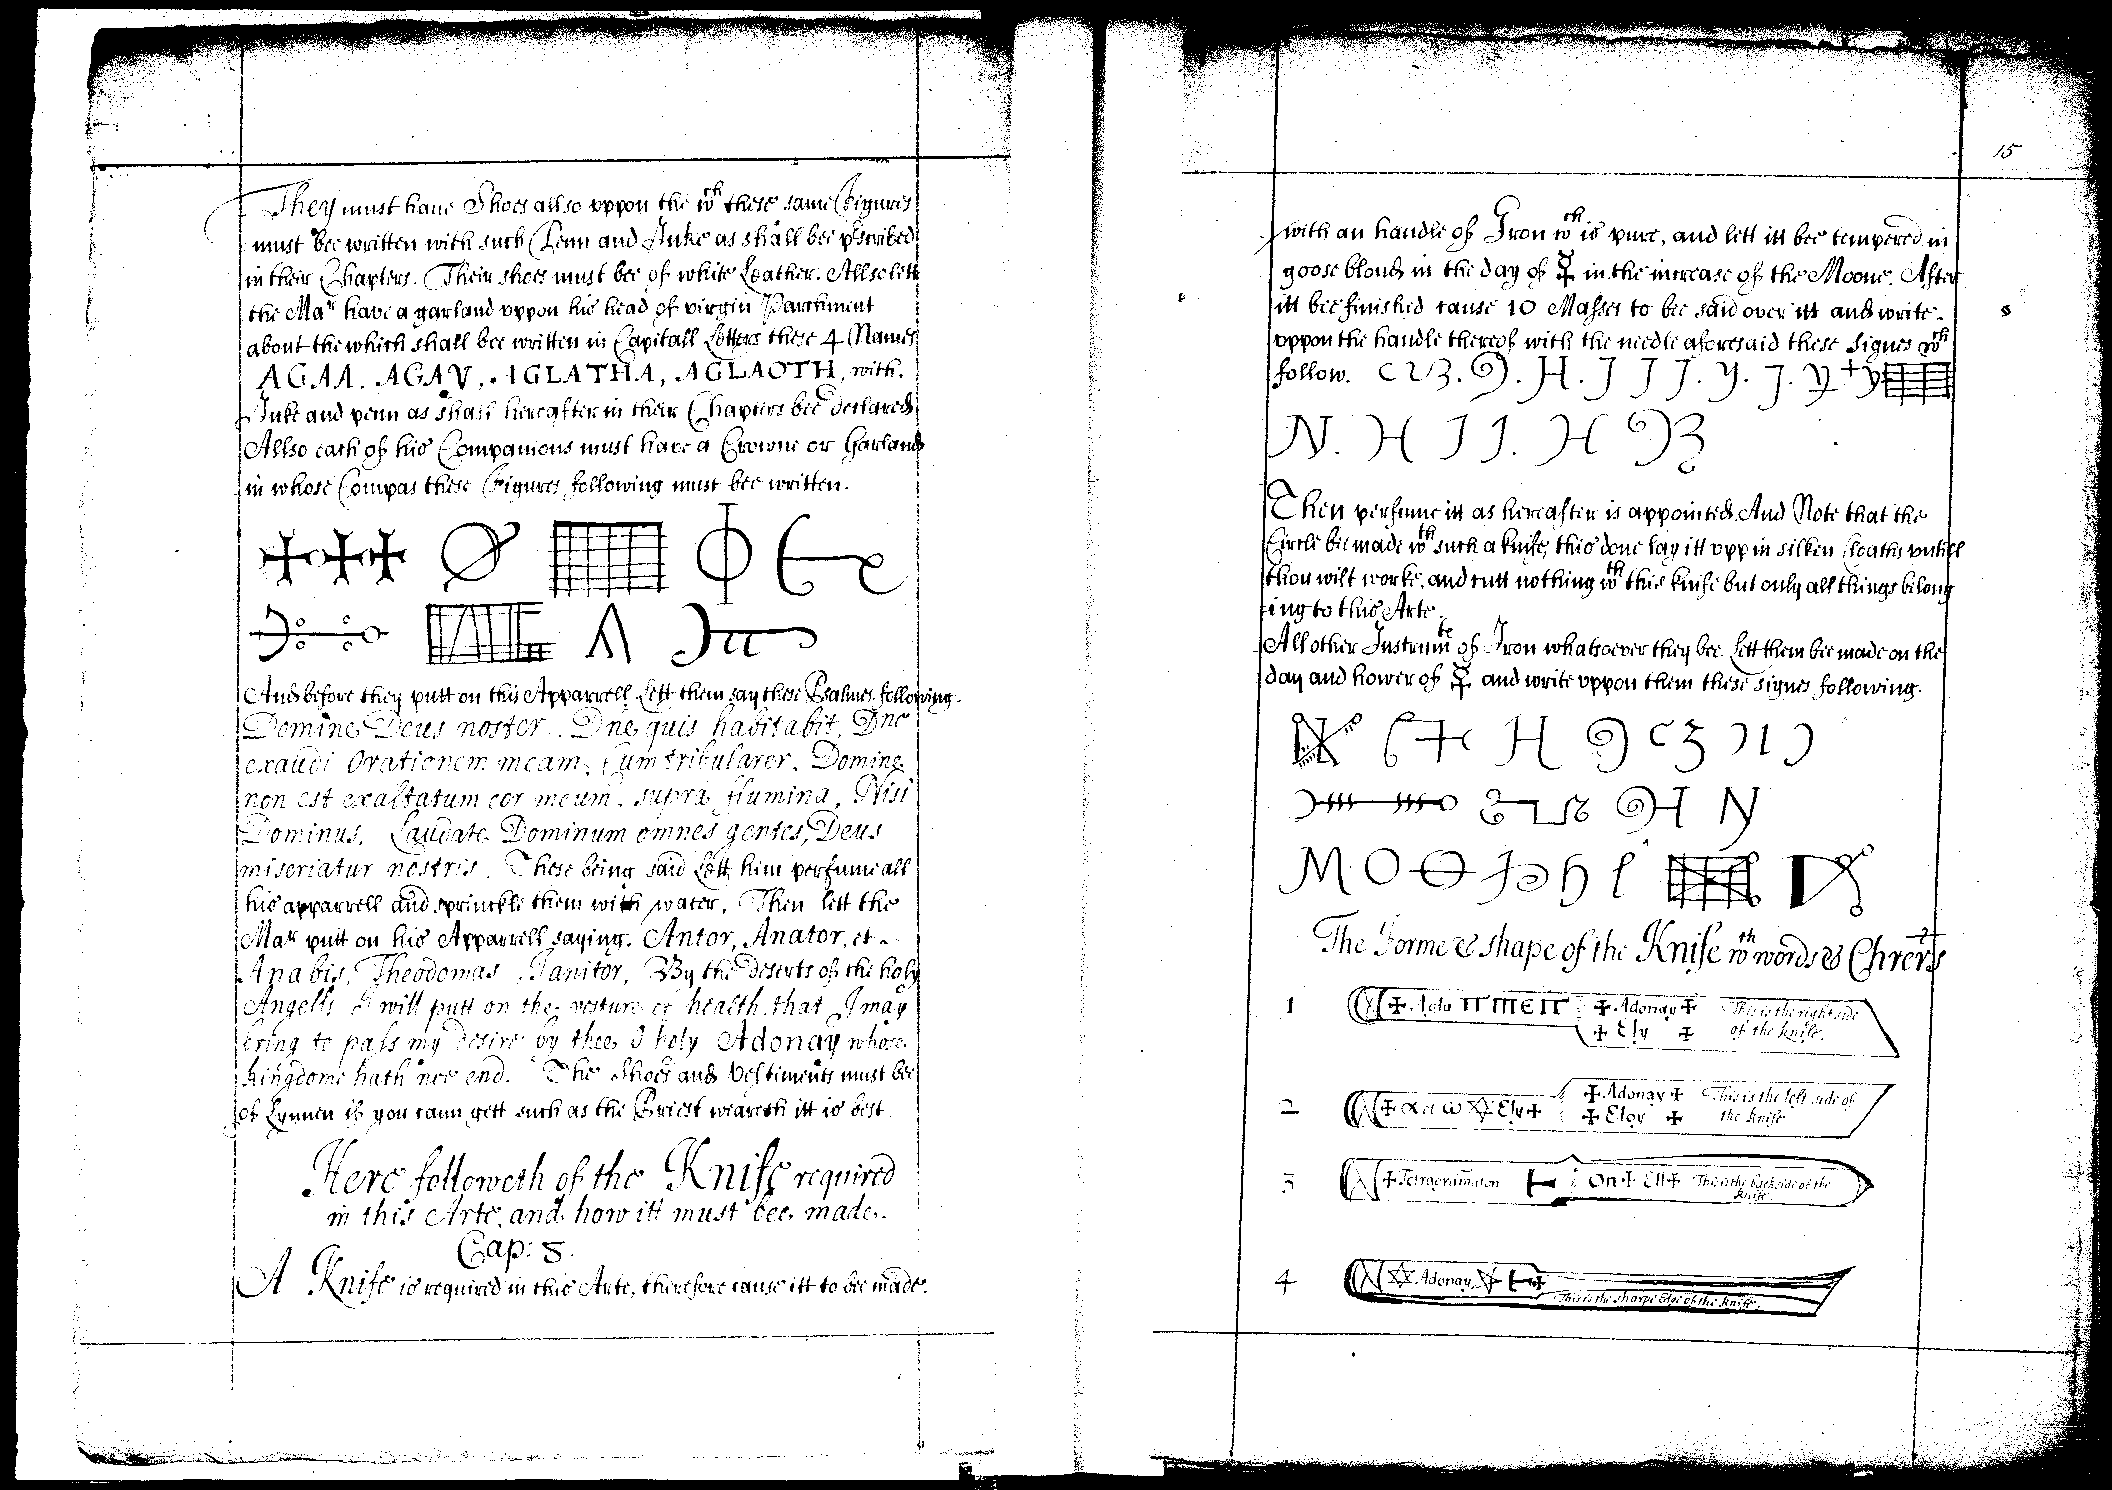 They must haue Shoes allso vppon the wch these same Figures
must bee written with such Penn and Inke as shall bee pscribed
in their Chapters. Their shoes must bee of white Leather. Allso lett
the Mar haue a garland vppon his head of virgin Parchment
about the which shall bee written in Capitall Letters these 4 Names
AGAA. AGAV, AGLATHA, AGLAOTH, with.
Inke and penn as shall hereafter in their Chapters bee declared
Allso each of his Companions must haue a Crowne or Garland
in whose Compas these Figures following must bee written.
And before they putt on this Apparrell Lett them say these Psalmes following.
Domine Deus noster. Dne quis habitabit. Dne
exaudi Orationem meam. Cum tribularer. Domine
non est exaltatum cor meum. supra flumina, Nisi
Dominus. Laudate Dominum omnes gentes, Deus
miseriatur nostris. These being said Lett him perfume all
his apparrell and sprinckle them with water. Then lett the
Mar putt on his Apparrell saying. Antor, Anator, et
Anabis, Theodomas Ianitor, By the deserts of the holy
Angells I will putt on the vesture of health that I may
bring to pass my desire by thee O holy Adonay whose
kingdome hath noe end. The Shoes and Vestiments must bee
of Lynnen if you cann gett such as the Priest weareth itt is best.
Here followeth of the Knife required
in this Arte, and how itt must bee made.
Cap: 8.
A Knife is required in this Arte, therefore cause itt to bee made.
15
with an handle of Iron wch is pure, and lett itt bee tempered in
goose bloud in the day of ☿ in the increase of the Moone. After
itt bee finished cause 10 Masses to bee said over itt and write
vppon the handle thereof with the needle aforesaid these signes wch
follow.
Then perfume itt as hereafter is appointed. And Note that the
Circle bee made wth such a knife, this done lay itt vpp in silken Cloaths vntill
thou wilt worke, and cutt nothing wth this knife but only all things belong
ing to this Arte.
All other Instrumte of Iron whatsoever they bee Lett them bee made on the
day and hower of ☿ and write vppon them these signes following.
The Forme & shape of the Knife wth words & Chrers
1 ✠ Agla ✠ Adonay ✠ This is the right side
✠ Ely ✠ of the knife.
2 ✠ Ely ✠ ✠ Adonay ✠ This is the left side of
✠ Eloy ✠ the knife
3 ✠ Tetragramaton On ✠ Ell ✠ This is the backside of the
knife.
4 Adonay
This is the sharpe edge of the knife.